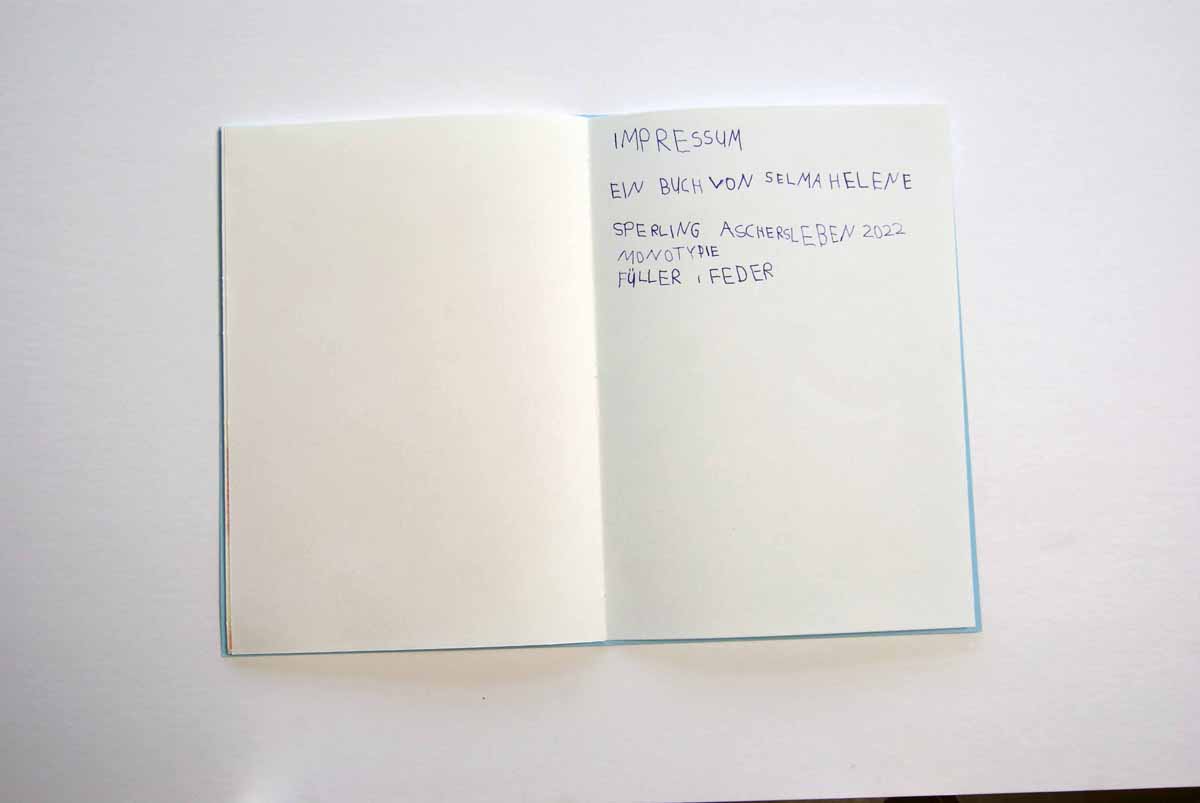 IMPRESSUM
EIN BUCH VON SELMA HELENE
SPERLING ASCHERSLEBEN 2022
MONOTYPIE
FÜLLER , FEDER